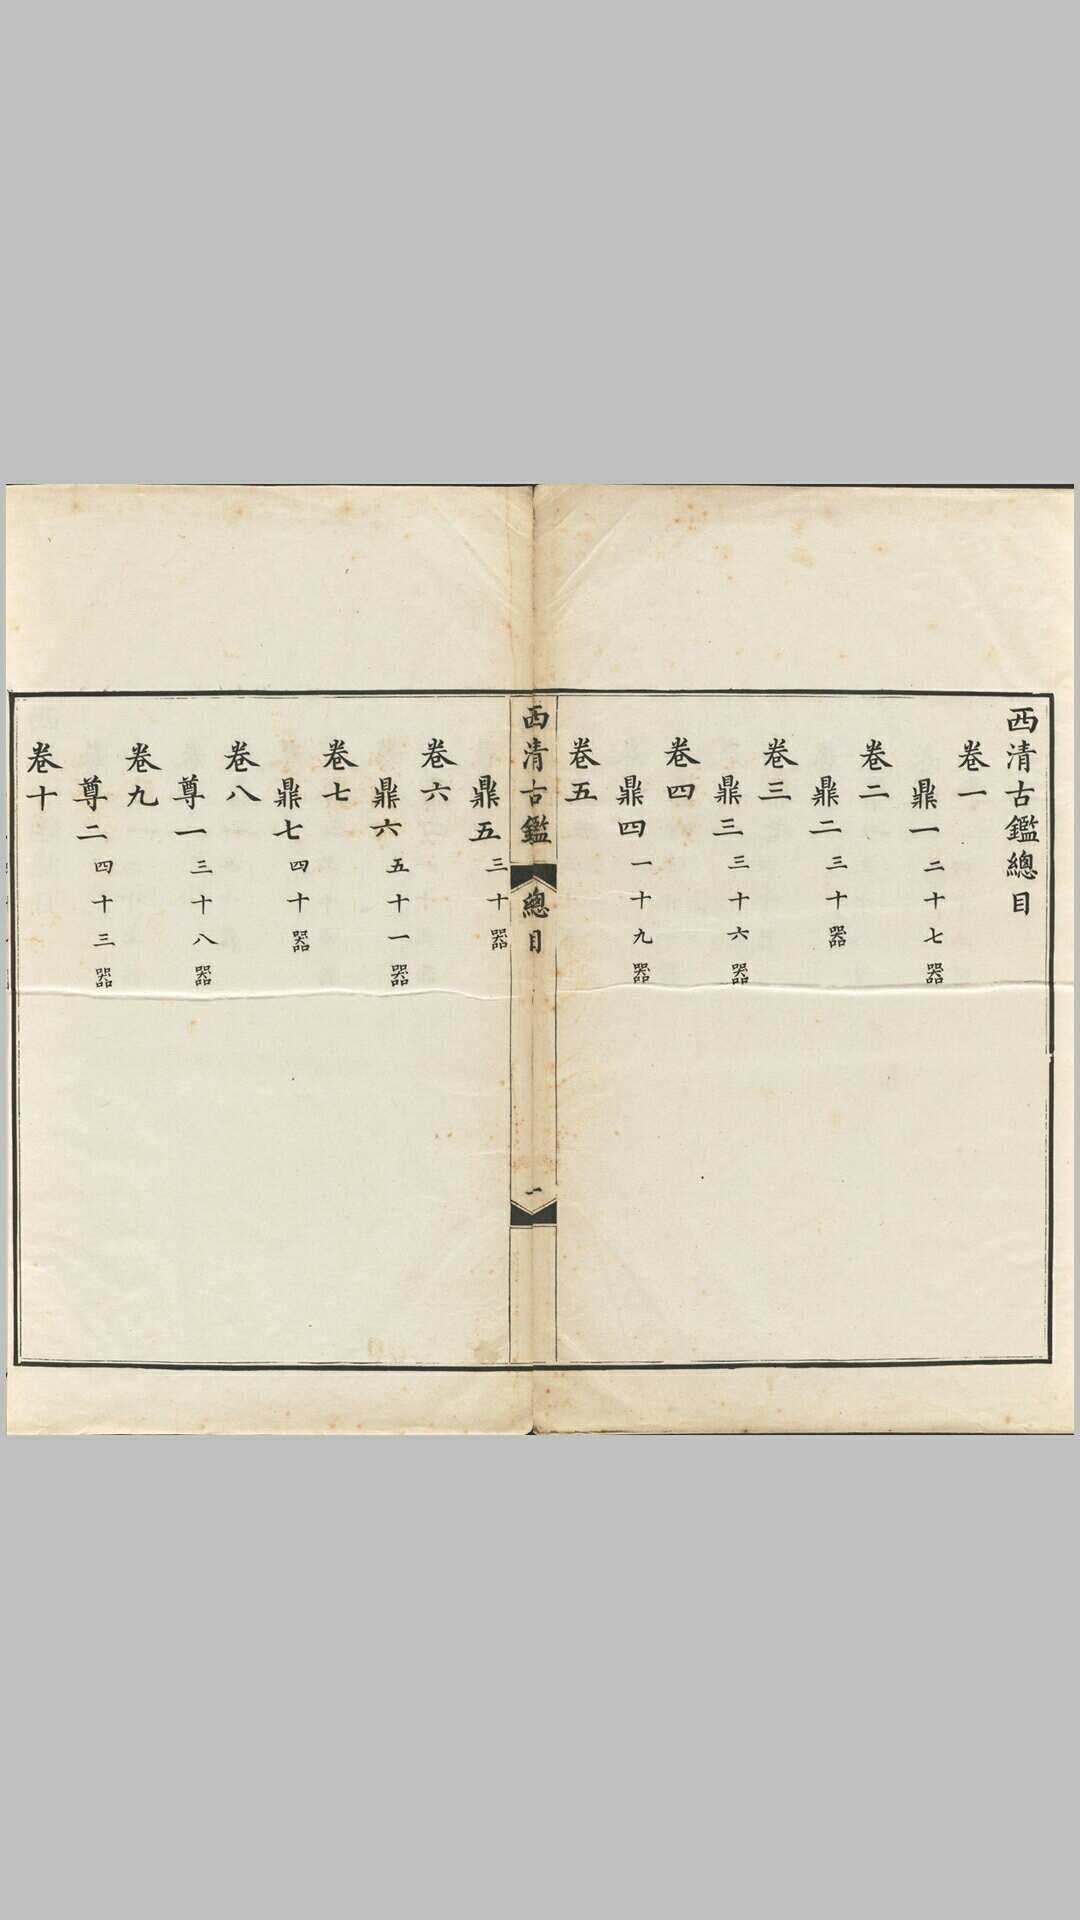 西清古鑑總目
卷一
鼎一 二十七器
卷二
鼎二 三十器
卷三
鼎三 三十六器
卷四
鼎四 一十九器
卷五
西清古鑑 總目 一
鼎五 三十器
卷六
鼎六 五十一器
卷七
鼎七 四十器
卷八
尊一 三十八器
卷九
尊二 四十三器
卷十